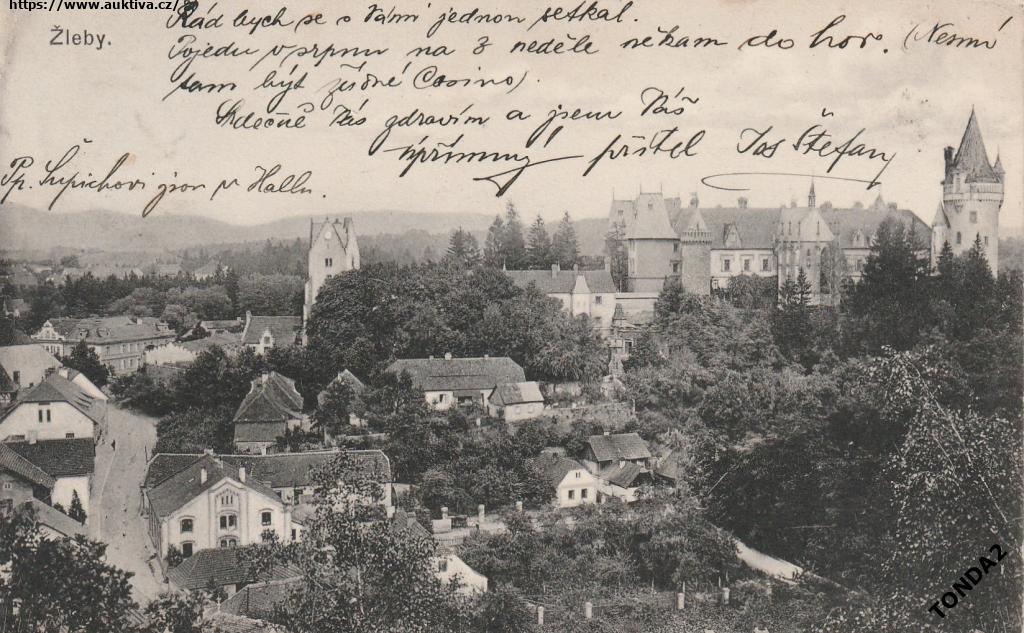 https://www.auktiva.cz/
Žleby.
Rád bych se s Vámi jednou setkal.
Pojedu v srpnu na 3 neděle někam do hor. (Nesmí
tam být žádné Casino).
Srdečně Vás zdravím a jsem Váš
upřímný přítel Jos Štefany
Pp. Šupichovi jsou v Hallu.
TONDA2